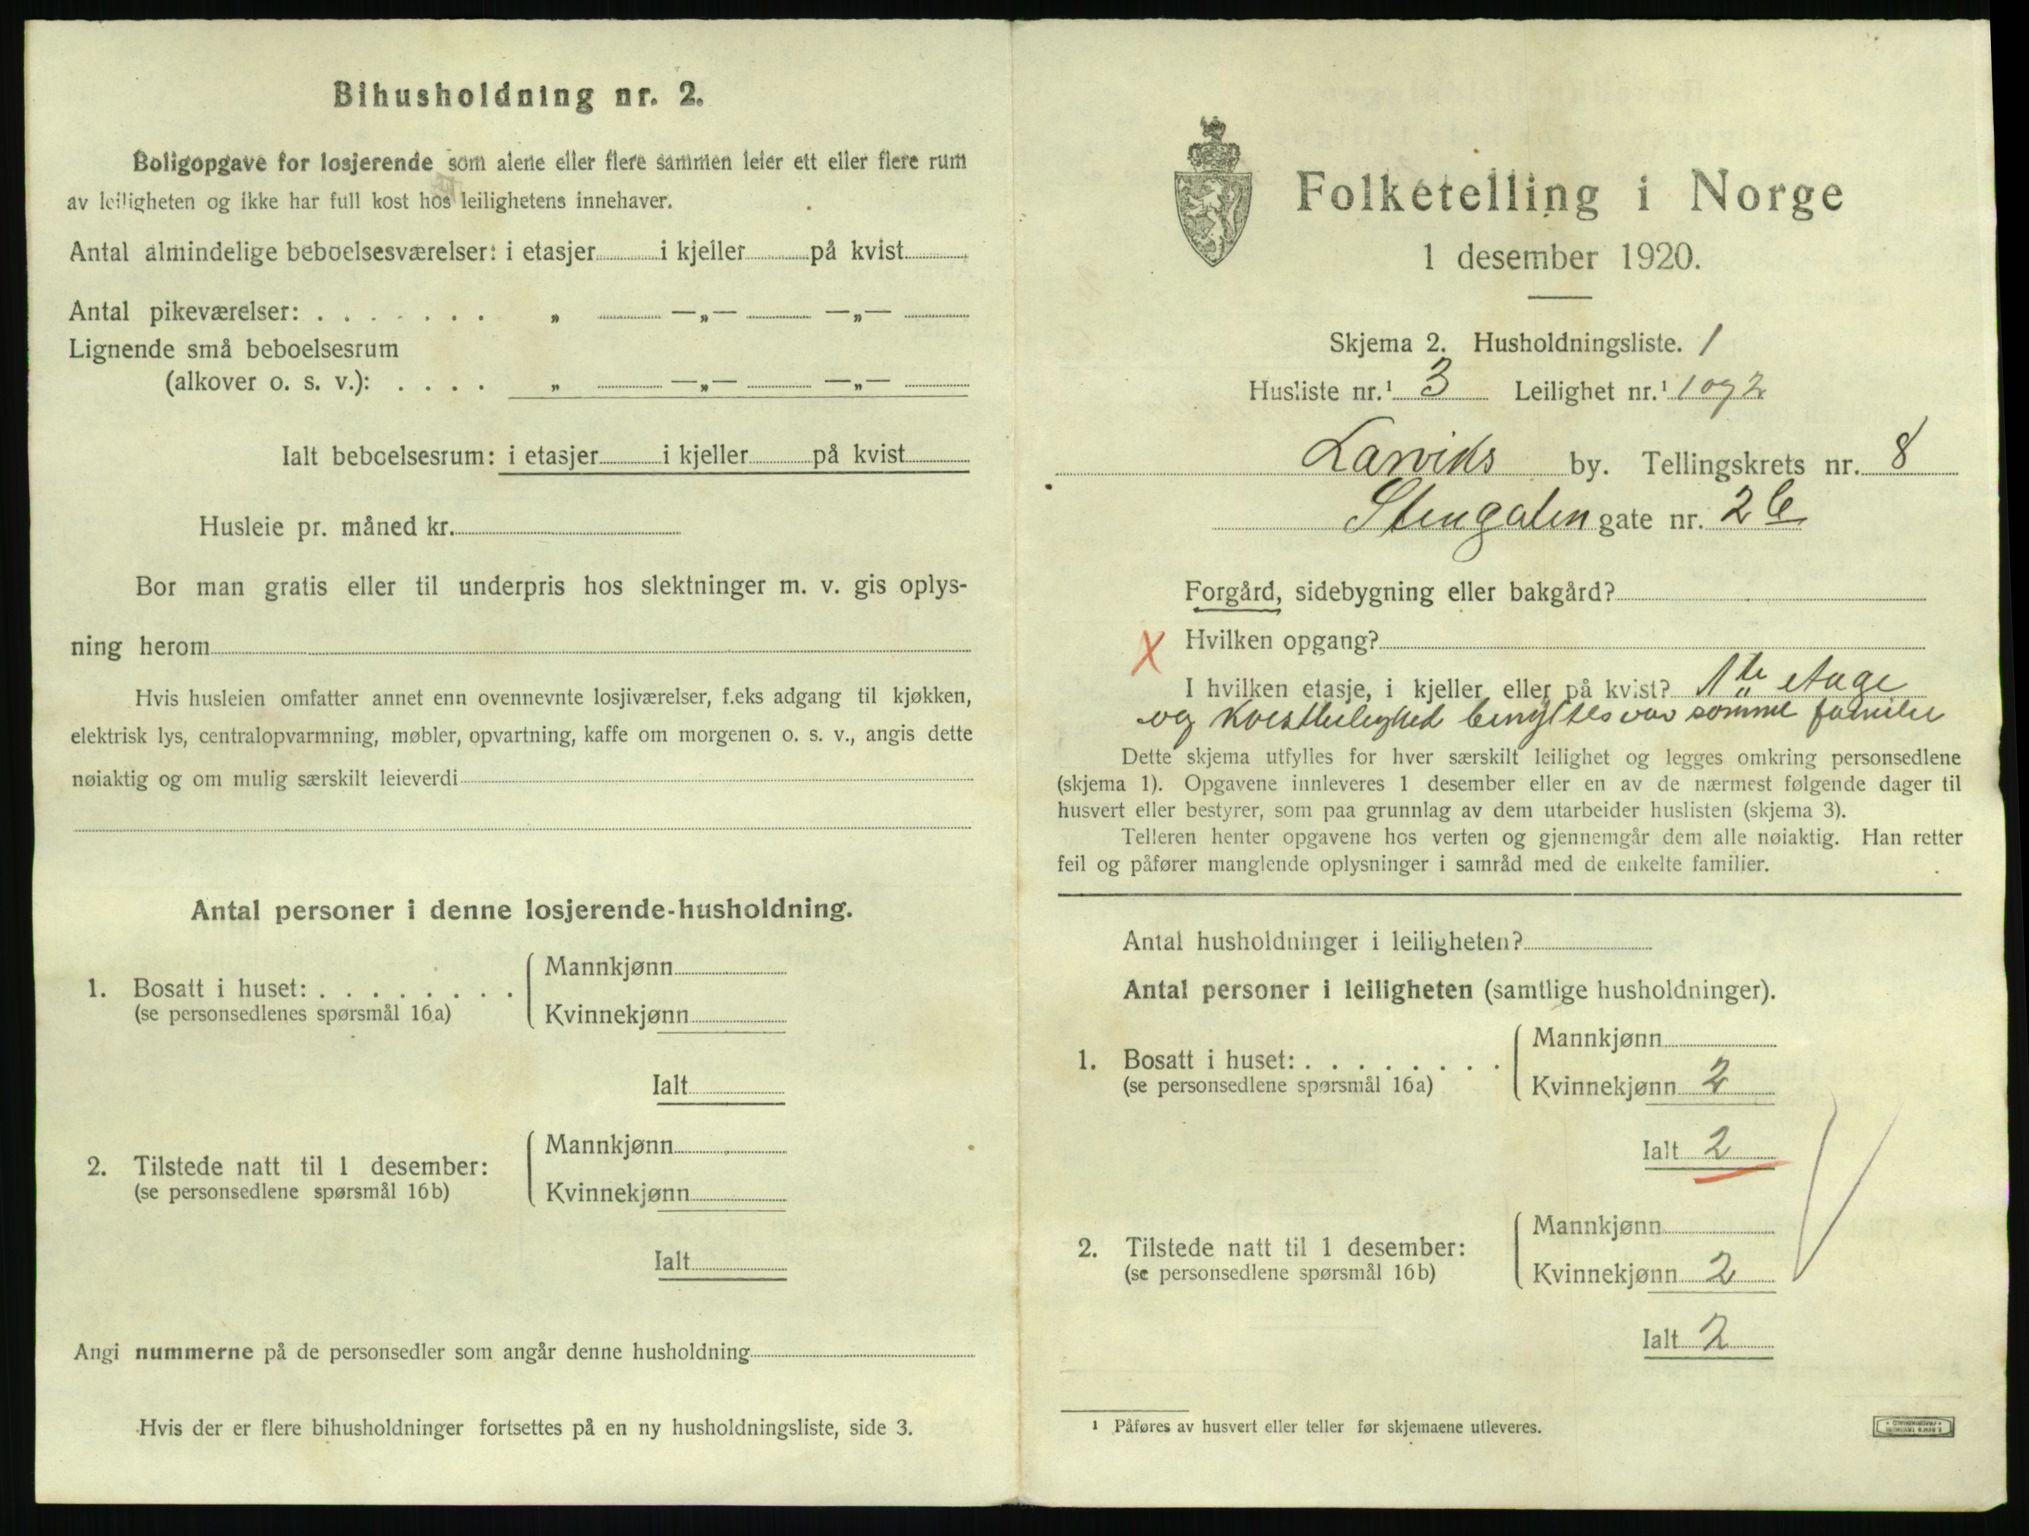 Bihusholdning nr. 2.
Boligopgave for losjerende som alene eller flere sammen leier ett eller flere rum
av leiligheten og ikke har full kost hos leilighetens innehaver.
Antal almindelige beboelsesværelser: i etasjer i kjeller på kvist
Antal pikeværelser: . . . . . . . „ —„— —„—
Lignende små beboelsesrum
(alkover o. s. v.): . . . . „ —„— —„—
Ialt beboelsesrum: i etasjer i kjeller på kvist
Husleie pr. måned kr.
Bor man gratis eller til underpris hos slektninger m. v. gis oplys-
ning herom
Hvis husleien omfatter annet enn ovennevnte losjiværelser, f.eks adgang til kjøkken,
elektrisk lys, centralopvarmning, møbler, opvartning, kaffe om morgenen o. s. v., angis dette
nøiaktig og om mulig særskilt leieverdi
Antal personer i denne losjerende-husholdning.
1. Bosatt i huset: . . . . . . . .
(se personsedlenes spørsmål 16a)
Mannkjønn
Kvinnekjønn
Ialt
2. Tilstede natt til 1 desember:
(se personsedlene spørsmål 16b)
Mannkjønn
Kvinnekjønn
Ialt
Angi nummerne på de personsedler som angår denne husholdning
Hvis der er flere bihusholdninger fortsettes på en ny husholdningsliste, side 3.
Folketelling i Norge
1 desember 1920.
Skjema 2. Husholdningsliste. 1
Husliste nr.¹ 3 Leilighet nr.¹ 1 og 2
Larviks by. Tellingskrets nr. 8
Stengaten gate nr. 2 C
Forgård, sidebygning eller bakgård?
X Hvilken opgang?
I hvilken etasje, i kjeller eller på kvist? 1ste etage
og kvistleilighed benyttes av samme familie
Dette skjema utfylles for hver særskilt leilighet og legges omkring personsedlene
(skjema 1). Opgavene innleveres 1 desember eller en av de nærmest følgende dager til
husvert eller bestyrer, som paa grunnlag av dem utarbeider huslisten (skjema 3).
Telleren henter opgavene hos verten og gjennemgår dem alle nøiaktig. Han retter
feil og påfører manglende oplysninger i samråd med de enkelte familier.
Antal husholdninger i leiligheten?
Antal personer i leiligheten (samtlige husholdninger).
1. Bosatt i huset: . . . . . . . .
(se personsedlene spørsmål 16a)
Mannkjønn
Kvinnekjønn 2
Ialt 2
2. Tilstede natt til 1 desember:
(se personsedlene spørsmål 16b)
Mannkjønn
Kvinnekjønn 2
Ialt 2
¹ Påføres av husvert eller teller før skjemaene utleveres.